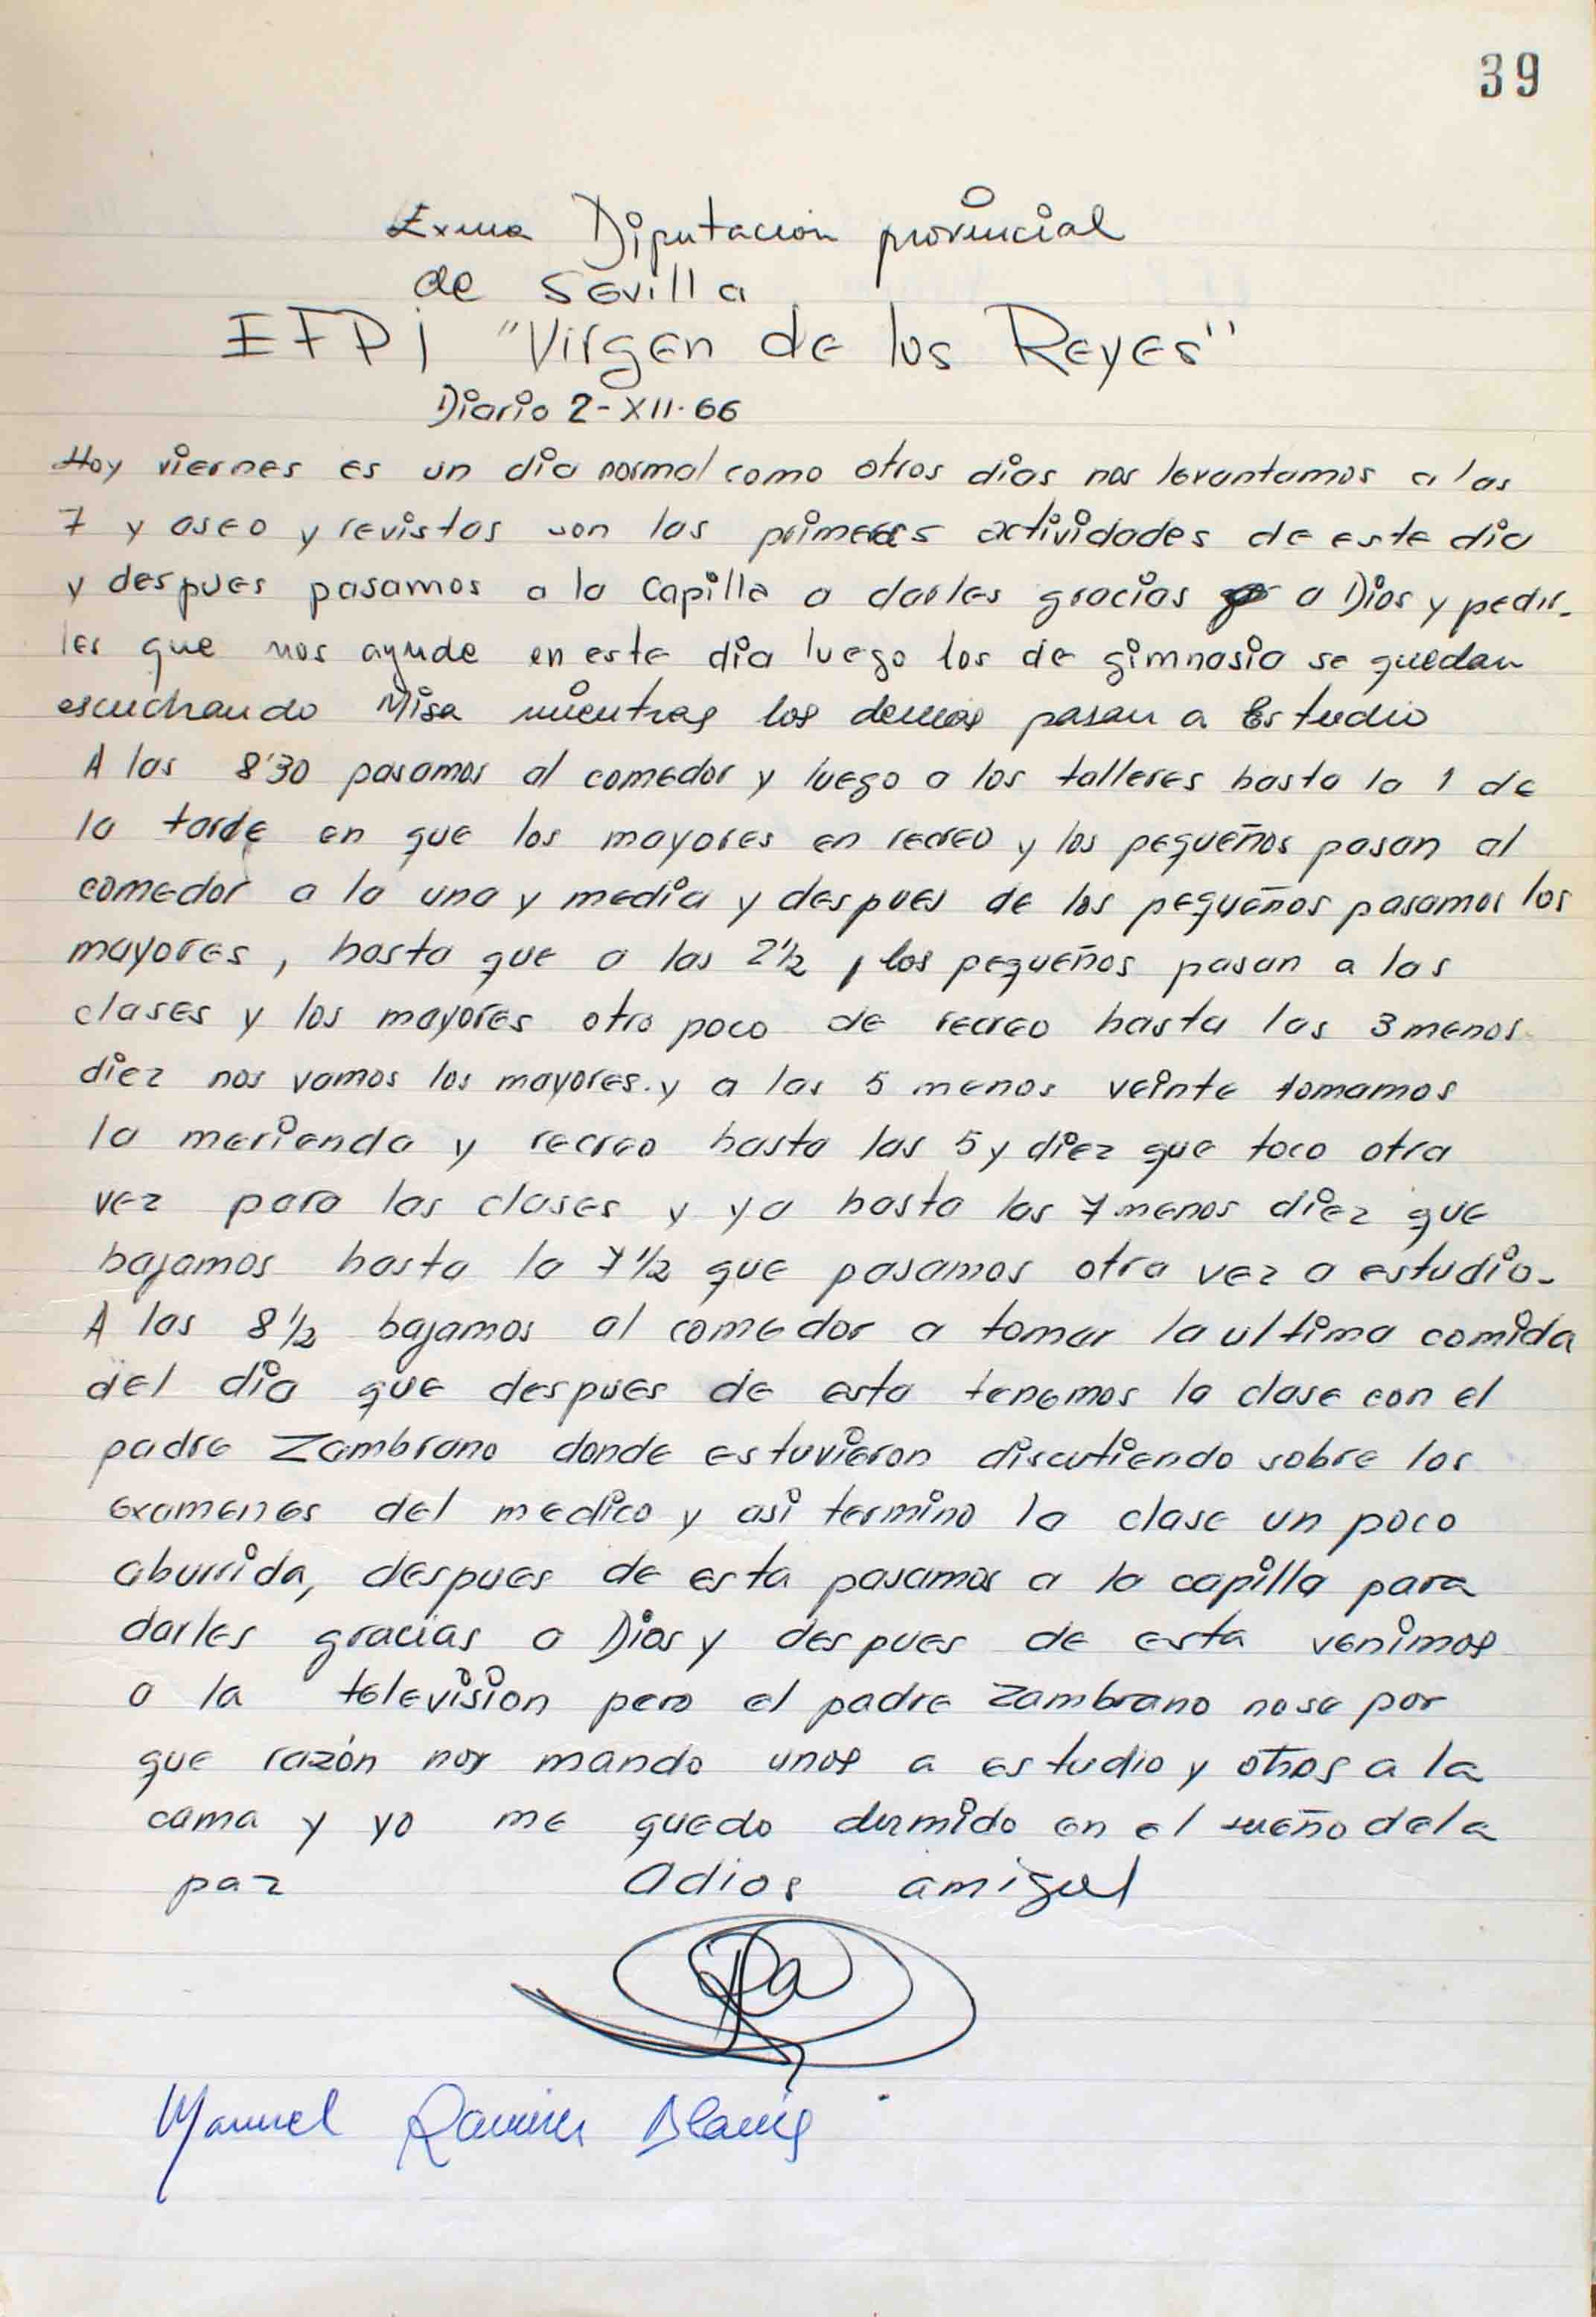 39
Exma Diputacion provincial
de Sevilla
EFPI "Virgen de los Reyes"
Diario 2-XII-66
Hoy viernes es un dia normal como otros dias nos levantamos a las
7 y aseo y revistas son las primeras actividades de este dia
y despues pasamos a la Capilla a darles gracias a Dios y pedir-
les que nos ayude en este dia luego los de gimnasia se quedan
escuchando Misa mientras los demas pasan a Estudio
A las 8'30 pasamos al comedor y luego a los talleres hasta la 1 de
la tarde en que los mayores en recreo y los pequeños pasan al
comedor a la una y media y despues de los pequeños pasamos los
mayores, hasta que a las 2½, los pequeños pasan a las
clases y los mayores otro poco de recreo hasta las 3 menos
diez nos vamos los mayores. y a las 5 menos veinte tomamos
la merienda y recreo hasta las 5 y diez que toco otra
vez para las clases y ya hasta las 7 menos diez que
bajamos hasta la 7½ que pasamos otra vez a estudio-
A las 8½ bajamos al comedor a tomar la ultima comida
del dia que despues de esta tenemos la clase con el
padre Zambrano donde estuvieron discutiendo sobre los
examenes del medico y asi termino la clase un poco
aburrida, despues de esta pasamos a la capilla para
darles gracias a Dios y despues de esta venimos
a la television pero el padre Zambrano nose por
que razón nos mando unos a estudio y otros a la
cama y yo me quedo durmido en el sueño dela
paz Adios amigul
Manuel Ramirez